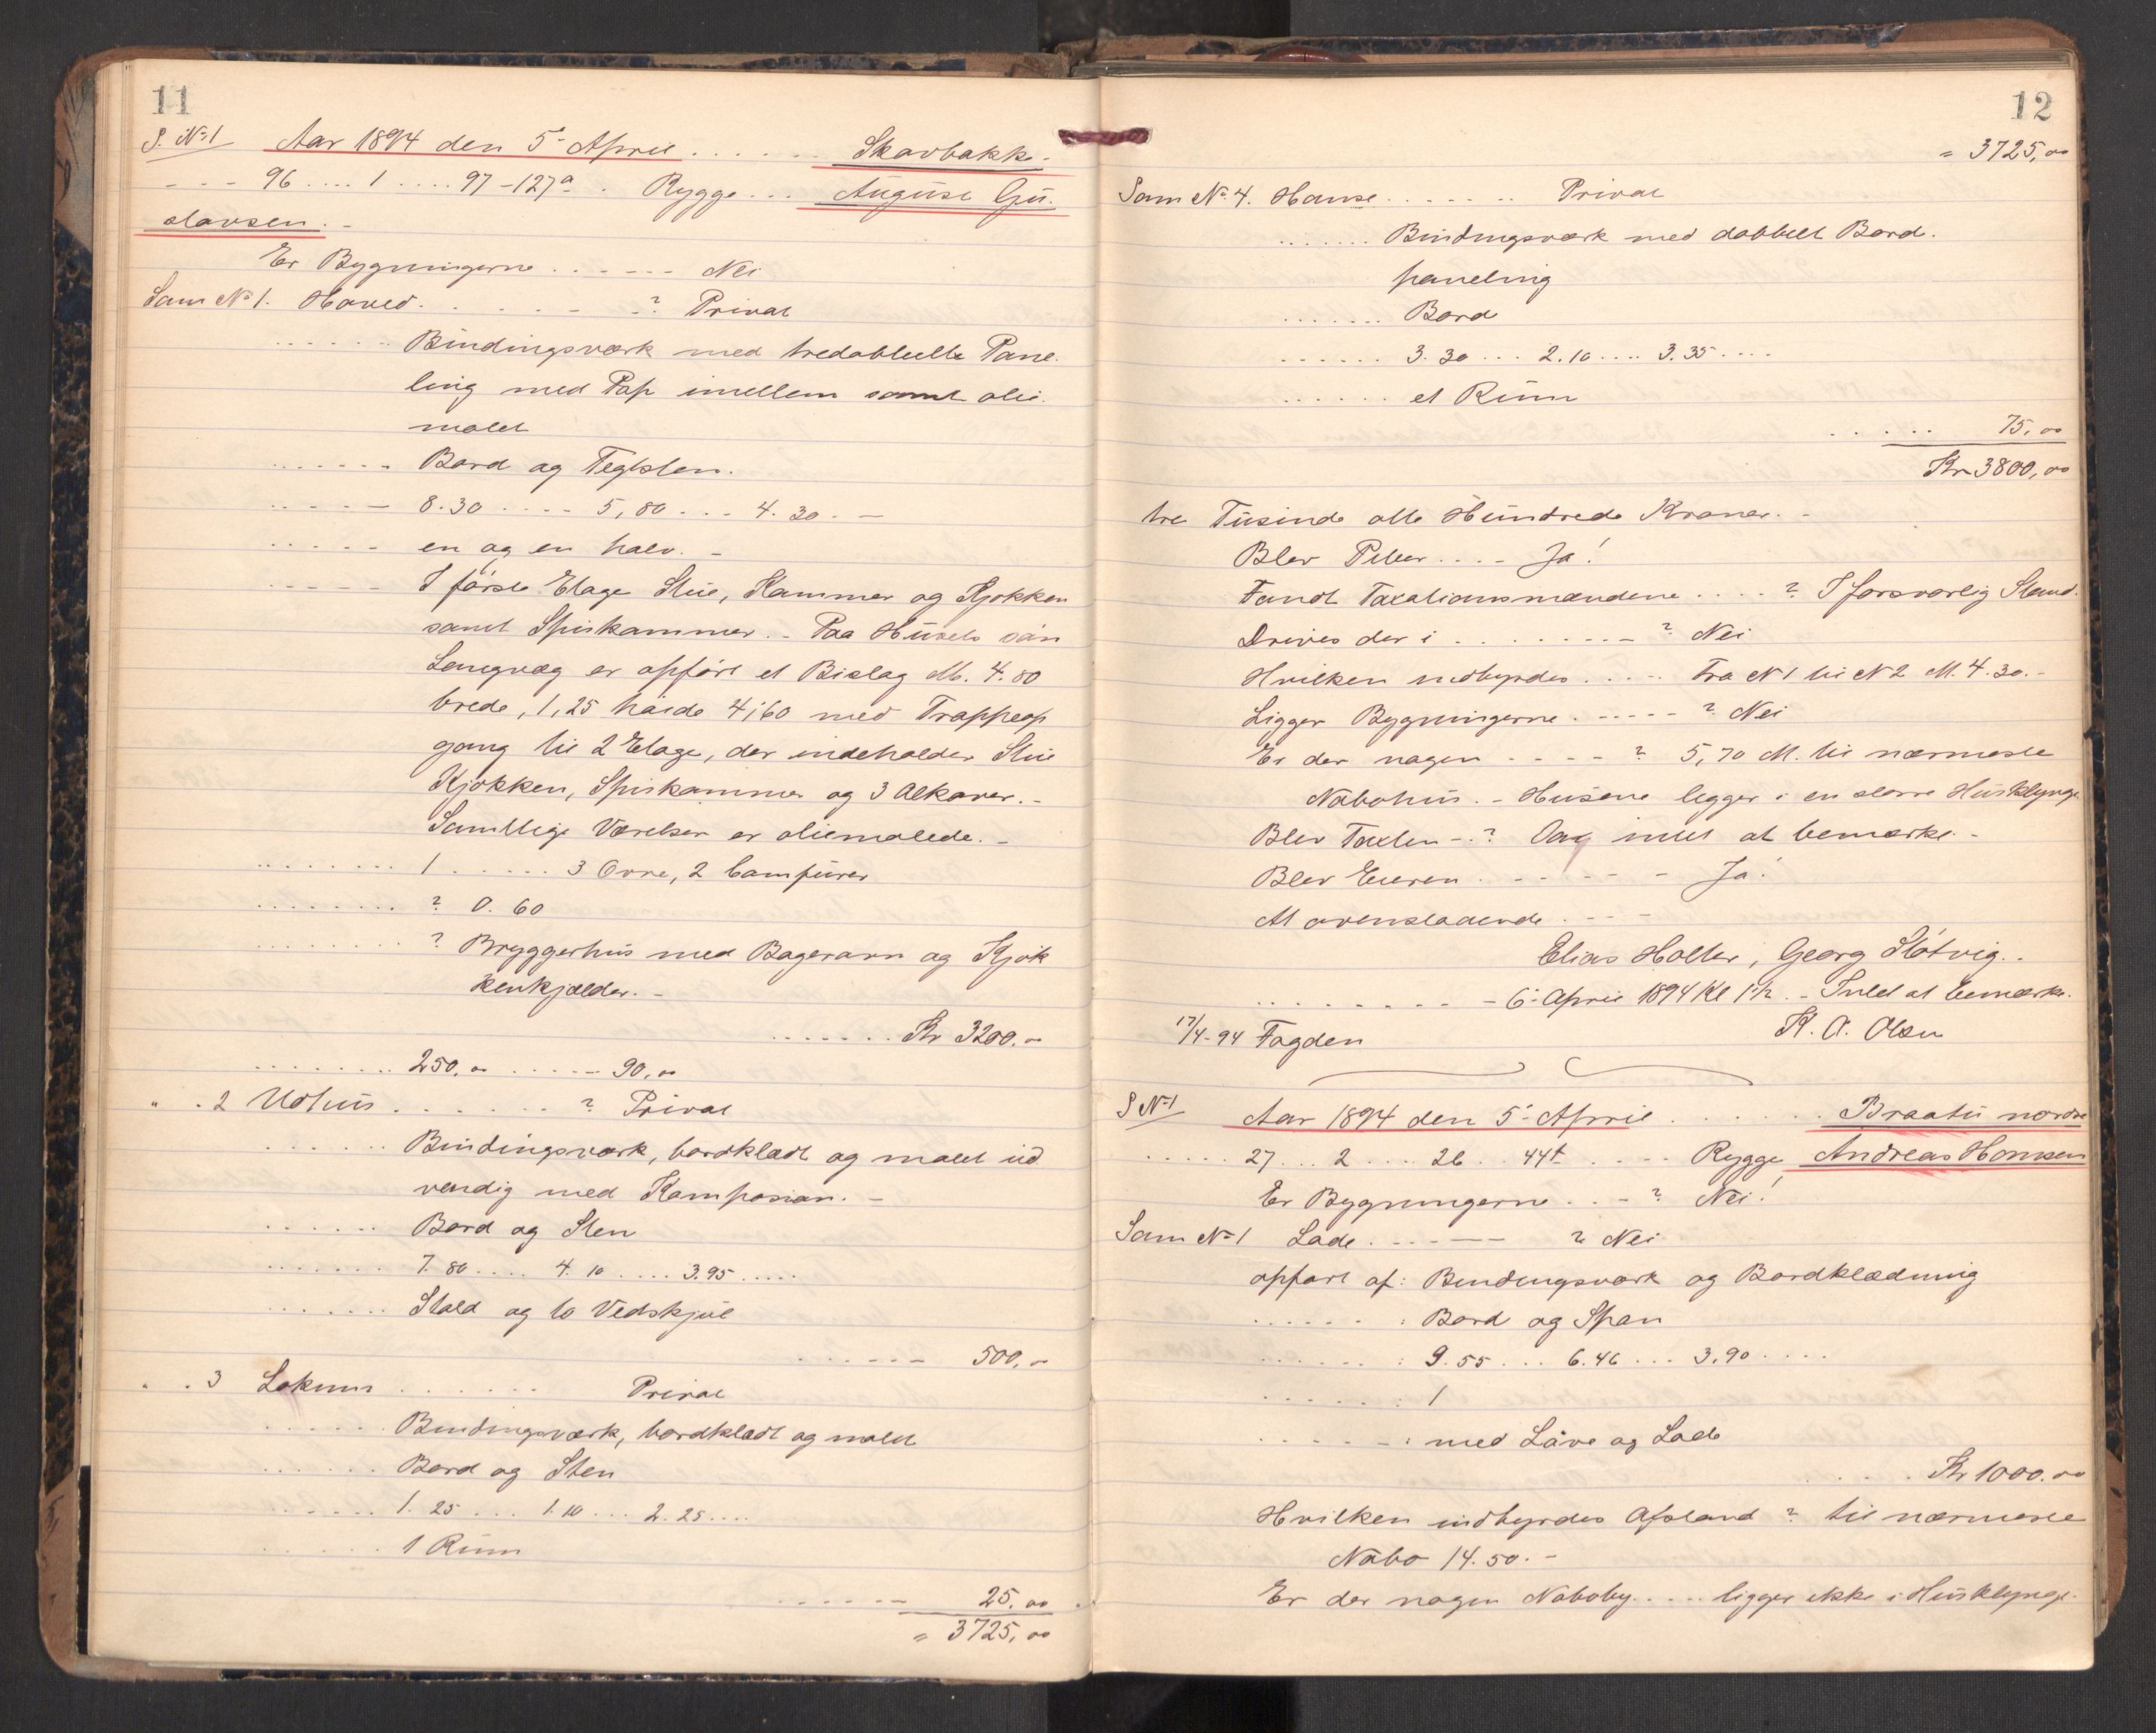 11
S. No 1 Aar 1894 den 5- April ...... Skovbakke.
- - - 96 .... 1 .... 97 - 127a . Rygge ... August Gu-
stavsen. -
Er Bygningerne ...... Nei
Sam No 1. Hoved. ......? Privat
...... Bindingsværk med tredobbelte Pane-
ling med Pap imellem samt olie-
malet
...... Bord og Teglsten.
..... 8.30 .... 5,80 ... 4.30. -
..... en og en halv. -
..... I første Etage Stue, Kammer og Kjøkken
samt Spiskammer. - Paa Husets søn
Langvæg er opført et Bislag M. 4.80
brede, 1,25 høide 4,60 med Trappeop
gang til 2 Etage, der indeholder Stue
Kjøkken, Spiskammer og 3 Alkover. -
Samtlige Værelser er oliemalede. -
........ 1 ...... 3 Ovne, 2 Comfurer
........ ? 0.60
........ ? Bryggerhus med Bagerovn og Kjøk
kenkjælder. -
....... Kr 3200.00
........ 250,00 ..... 90,00
" . 2 Udhus ........ ? Privat
...... Bindingsværk, bordklædt og malet ud
vendig med Komposion. -
...... Bord og Sten
....... 7.80 .... 4.10 .... 3.95 .....
....... Stald og to Vedskjul
...... 500,00
" . 3 Lokum ...... Privat
...... Bindingsværk, bordklædt og malet
...... Bord og Sten
...... 1.25 ... 1.10 ... 2.25 ....
..... 1 Rum
...... 25,00
= 3725,00
12
= 3725,00
Sam No 4. Hønse ....... Privat
...... Bindingsværk med dobbelt Bord-
paneling
....... Bord
...... 3.30 ... 2.10 .... 3.35 ....
...... et Rum
..... 75,00
Kr 3800,00
tre Tusinde otte Hundrede Kroner. -
Blev Peber .... Ja!
Fandt Taxationsmændene ....? I forsvarlig Stand.
Drives der i ........? Nei
Hvilken indbyrdes .... Fra N 1 til N 2 M. 4.30. -
Ligger Bygningerne .....? Nei
Er der nogen ....? 5,70 M. til nærmeste
Nabohus. - Husene ligger i en større Husklynge
Blev Taxten -.? Og intet at bemærke. -
Blev Eieren ...... Ja!
At ovenstaaende ...
Elias Holter, Georg Støtvig. .
........ - 6- April 1894 Kl 1 1/2. - Intet at bemærke.
17/4-94 Fogden K. A. Olsen
S No 1 Aar 1894 den 5- April ....... Braatu nordre
..... 27 ... 2 .... 26 .. 44t .... Rygge Andreas Hansen
Er Bygningerne ...? Nei!
Sam No 1 Lade. ..... ? Nei
opført af: Bindingsværk og Bordklædning
...... : Bord og Spon
...... : 9.55 ... 6.46 ... 3.90 ....
...... : 1
...... : med Låve og Lade
.... Kr 1000.00
Hvilken indbyrdes Afstand ? til nærmeste
Nabo 14.50. -
Er der nogen Naboby .... ligger ikke i Husklynge.